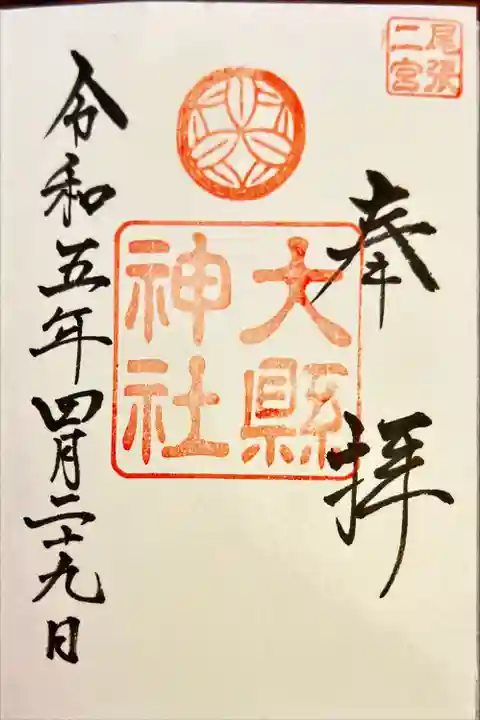 尾張
二宮
奉拝
大縣
神社
令和五年四月二十九日